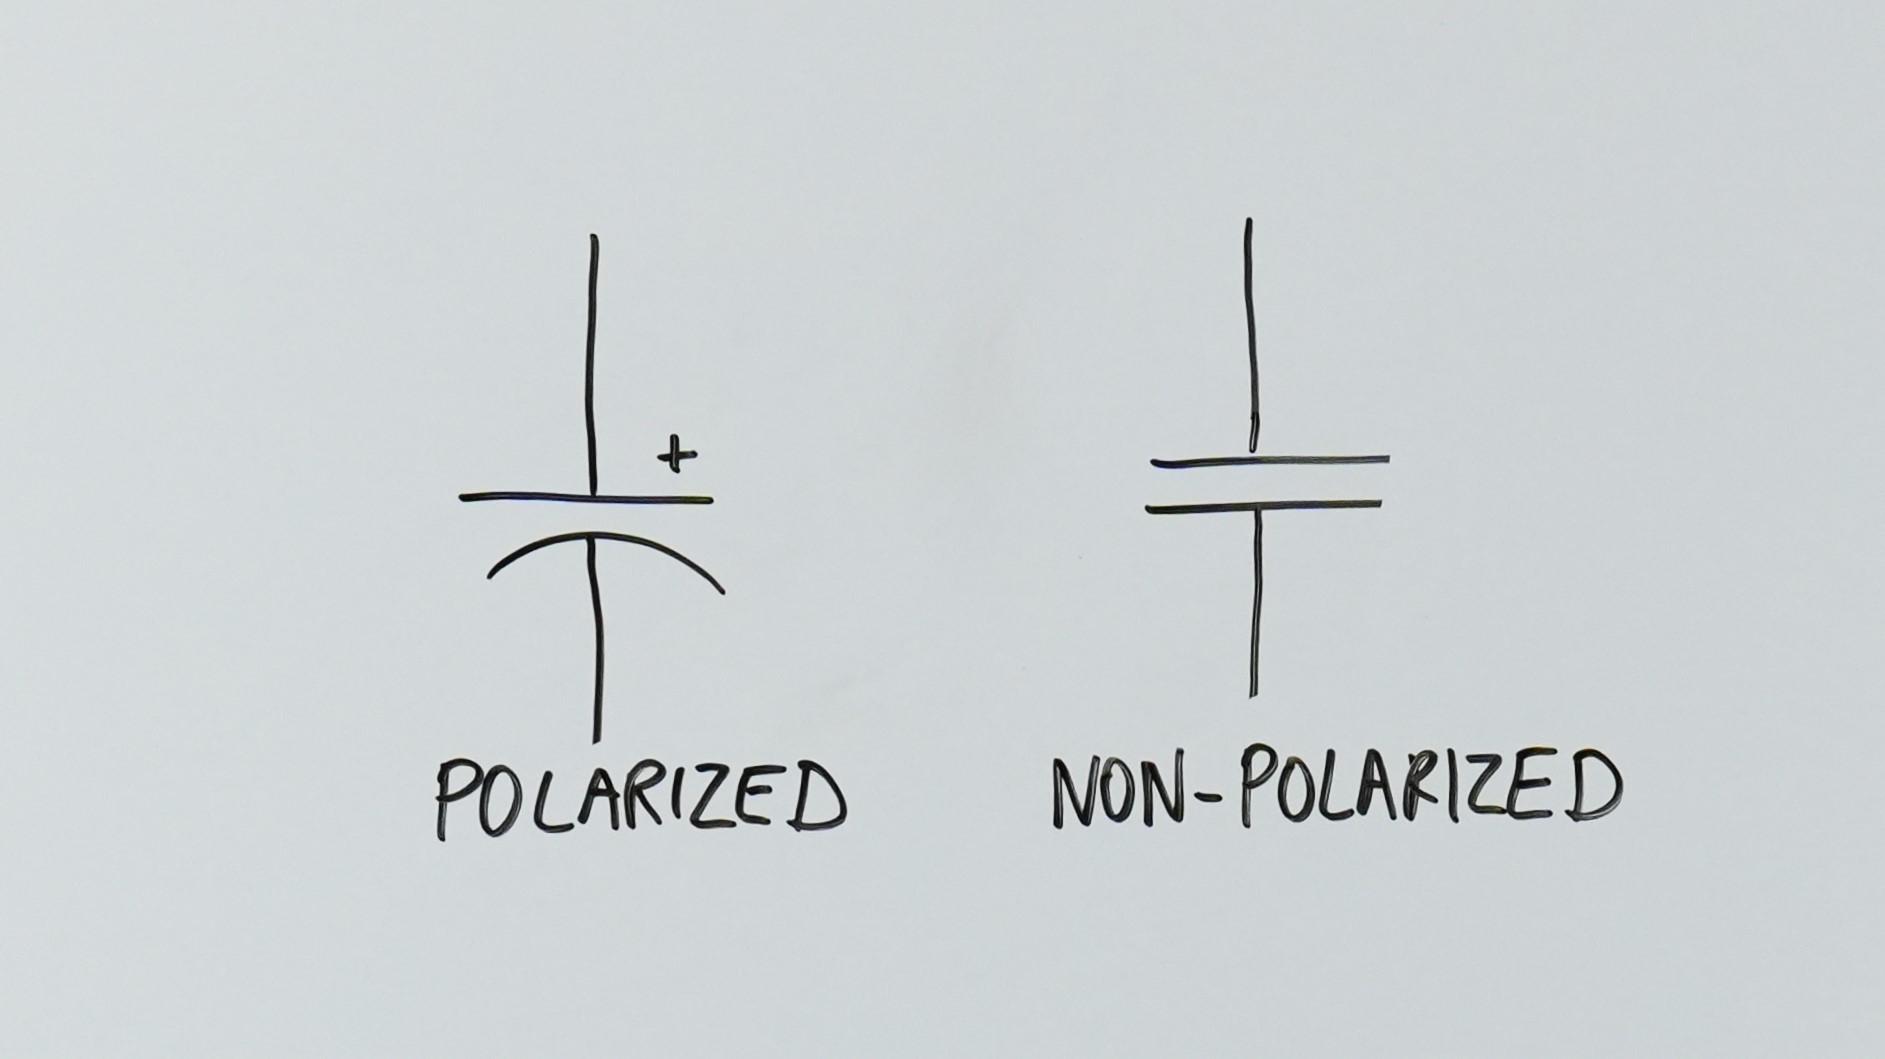 +
POLARIZED
NON-POLARIZED